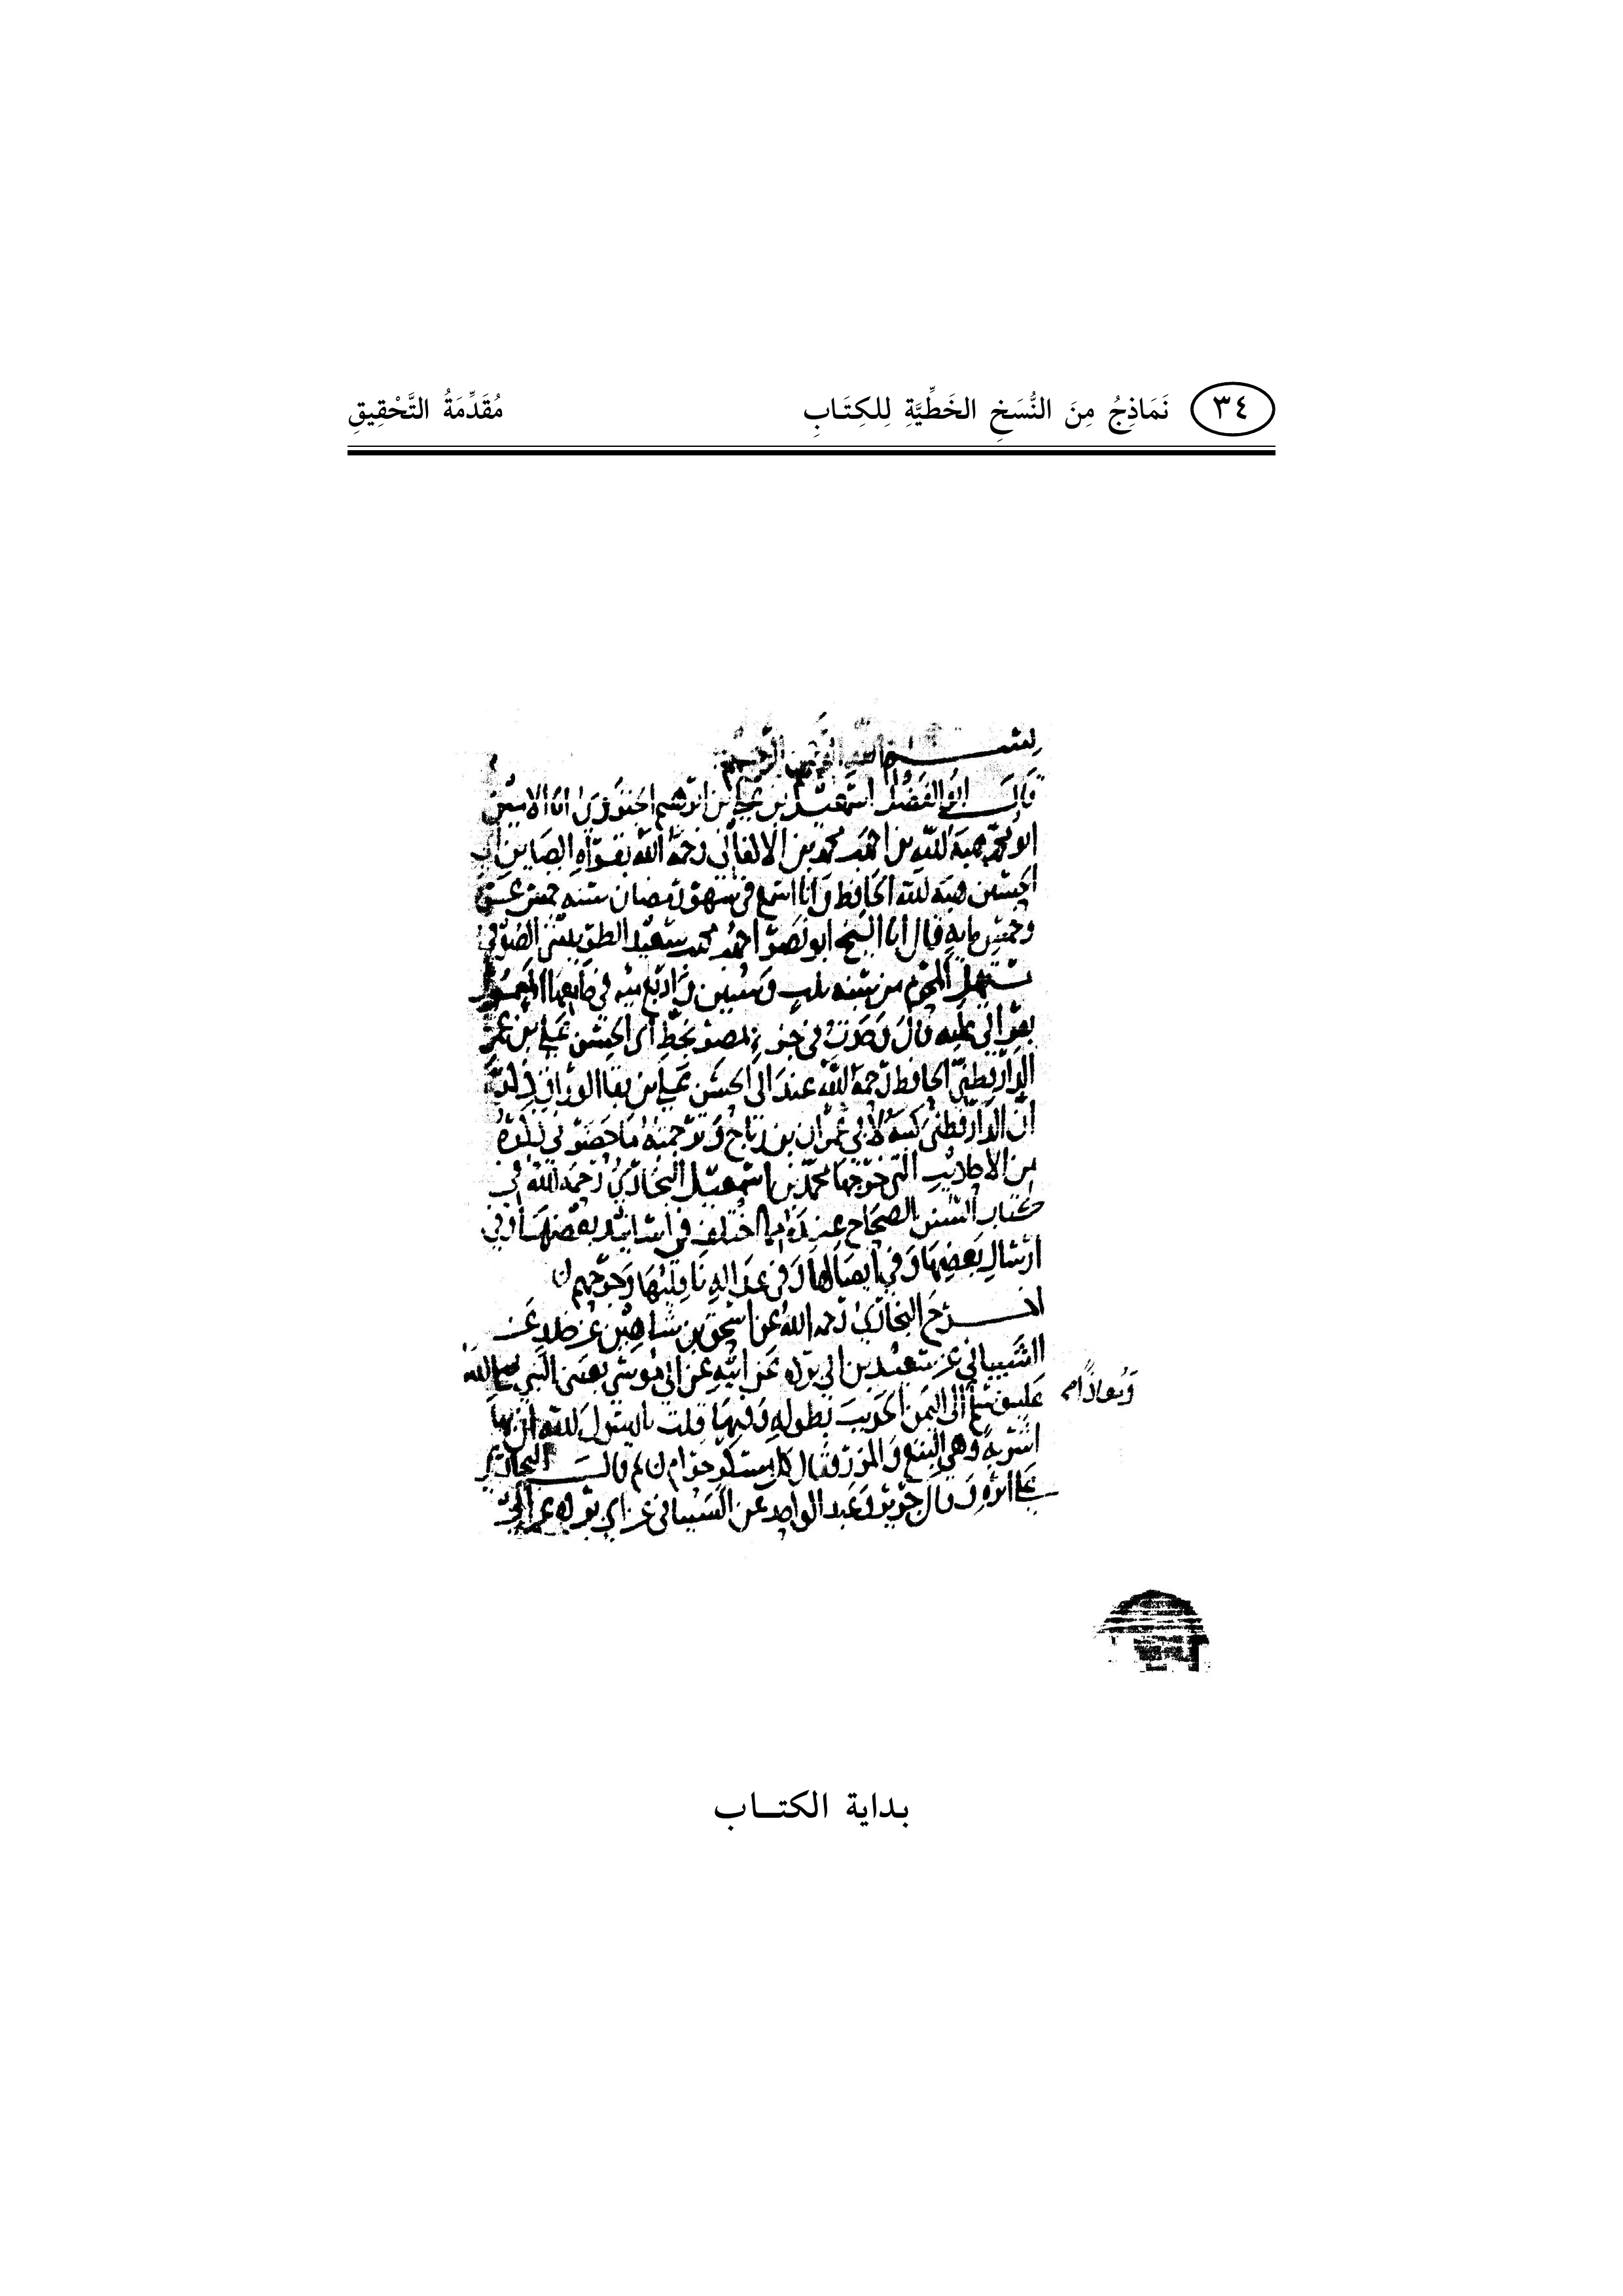 ٣٤ نَمَاذِجُ مِنَ النُّسَخِ الخَطِّيَّةِ لِلكِتَابِ مُقَدِّمَةُ التَّحْقِيقِ
بسم الله الرحمن الرحيم
قال ابو الفضل اسمعيل بن علي بن ابرهيم الجنزوي انا الامين
ابو محمد هبة الله بن احمد بن محمد بن الاكفاني رحمه الله بقراه الصاين ابي
الحسين هبة الله الحافظ وانا اسمع في شهر رمضان سنه خمس عشرة
وخمس مايه قال انا الشيخ ابو نصر احمد بن محمد بن سعيد الطريثيثي الصوفي
مستهل المحرم من سنه ثلث وستين واربع ميه في جامعها المعمور
بقراتي عليه قال وجدت في جزء بمصر بخط ابي الحسن علي بن عمر
الدارقطني الحافظ رحمه الله عند ابي الحسن علي بن بقا الوراق
ان الدارقطني كتبه لابي عمران بن رباح وترجمته ما حضرني ذكره
من الاحاديث التي خرجها محمد بن اسمعيل البخاري رحمه الله في
كتاب السنن الصحاح عنده مما اختلف في اسانيد بعضها وفي
ارسال بعضها وفي ايصالها وفي عداله ناقليها وجرحهم
اخرج البخاري رحمه الله عن اسحق بن شاهين عن خلد عن
الشيباني عن سعيد بن ابي برده عن ابيه عن ابي موسى بعثني النبي صلى الله
عليه وسلم الى اليمن الحديث بطوله وفيها قلت يا رسول الله ان بها
ومعاذا
اشربة وهي البتع والمزر فقال كل مسكر حرام ثم قال البخاري
على اثره وقال جرير وعبد الواحد عن الشيباني عن ابي برده عن ابي
بداية الكتاب